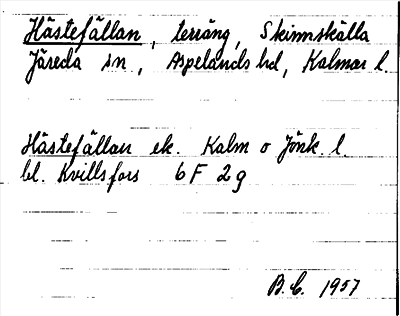 Hästefällan, teräng, Skinnskälla
Järeda sn, Aspelands hd, Kalmar l.
Hästefällan ek. Kalm o Jönk. l.
bl. Kvillsfors 6 F 2 g
B.C. 1957